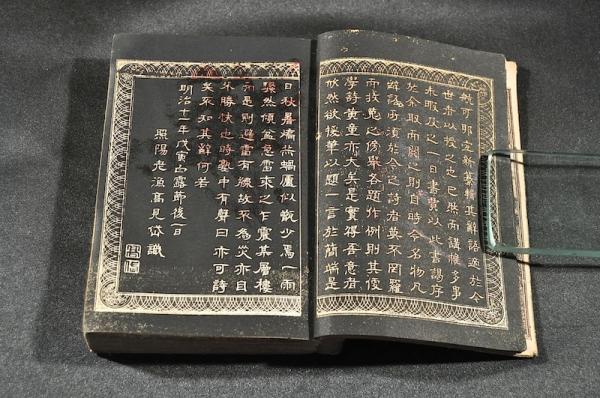 就可耶定新纂輯其辭語適於今
世者以授之也已然而講帷多事
未暇及之一日書賈以此書謁序
於余取而閱之則自時令名物凡
辭語必須於今之詩者莫不罔羅
而 蒐之傍擧各題作例則其便
学詩黄童亦大矣是實得吾意者
欣然欲援筆以題一言於簡端是
日秋暑 然蝸廬似 少焉一雨
驟然傾盆急雷來之乍震其層樓
而是則避雷有線故不為災亦自
不勝快也時 中有聲曰亦可詩
矣不知其辭何若
明治十一年戊寅白露節後一日
照陽老漁高見岱識